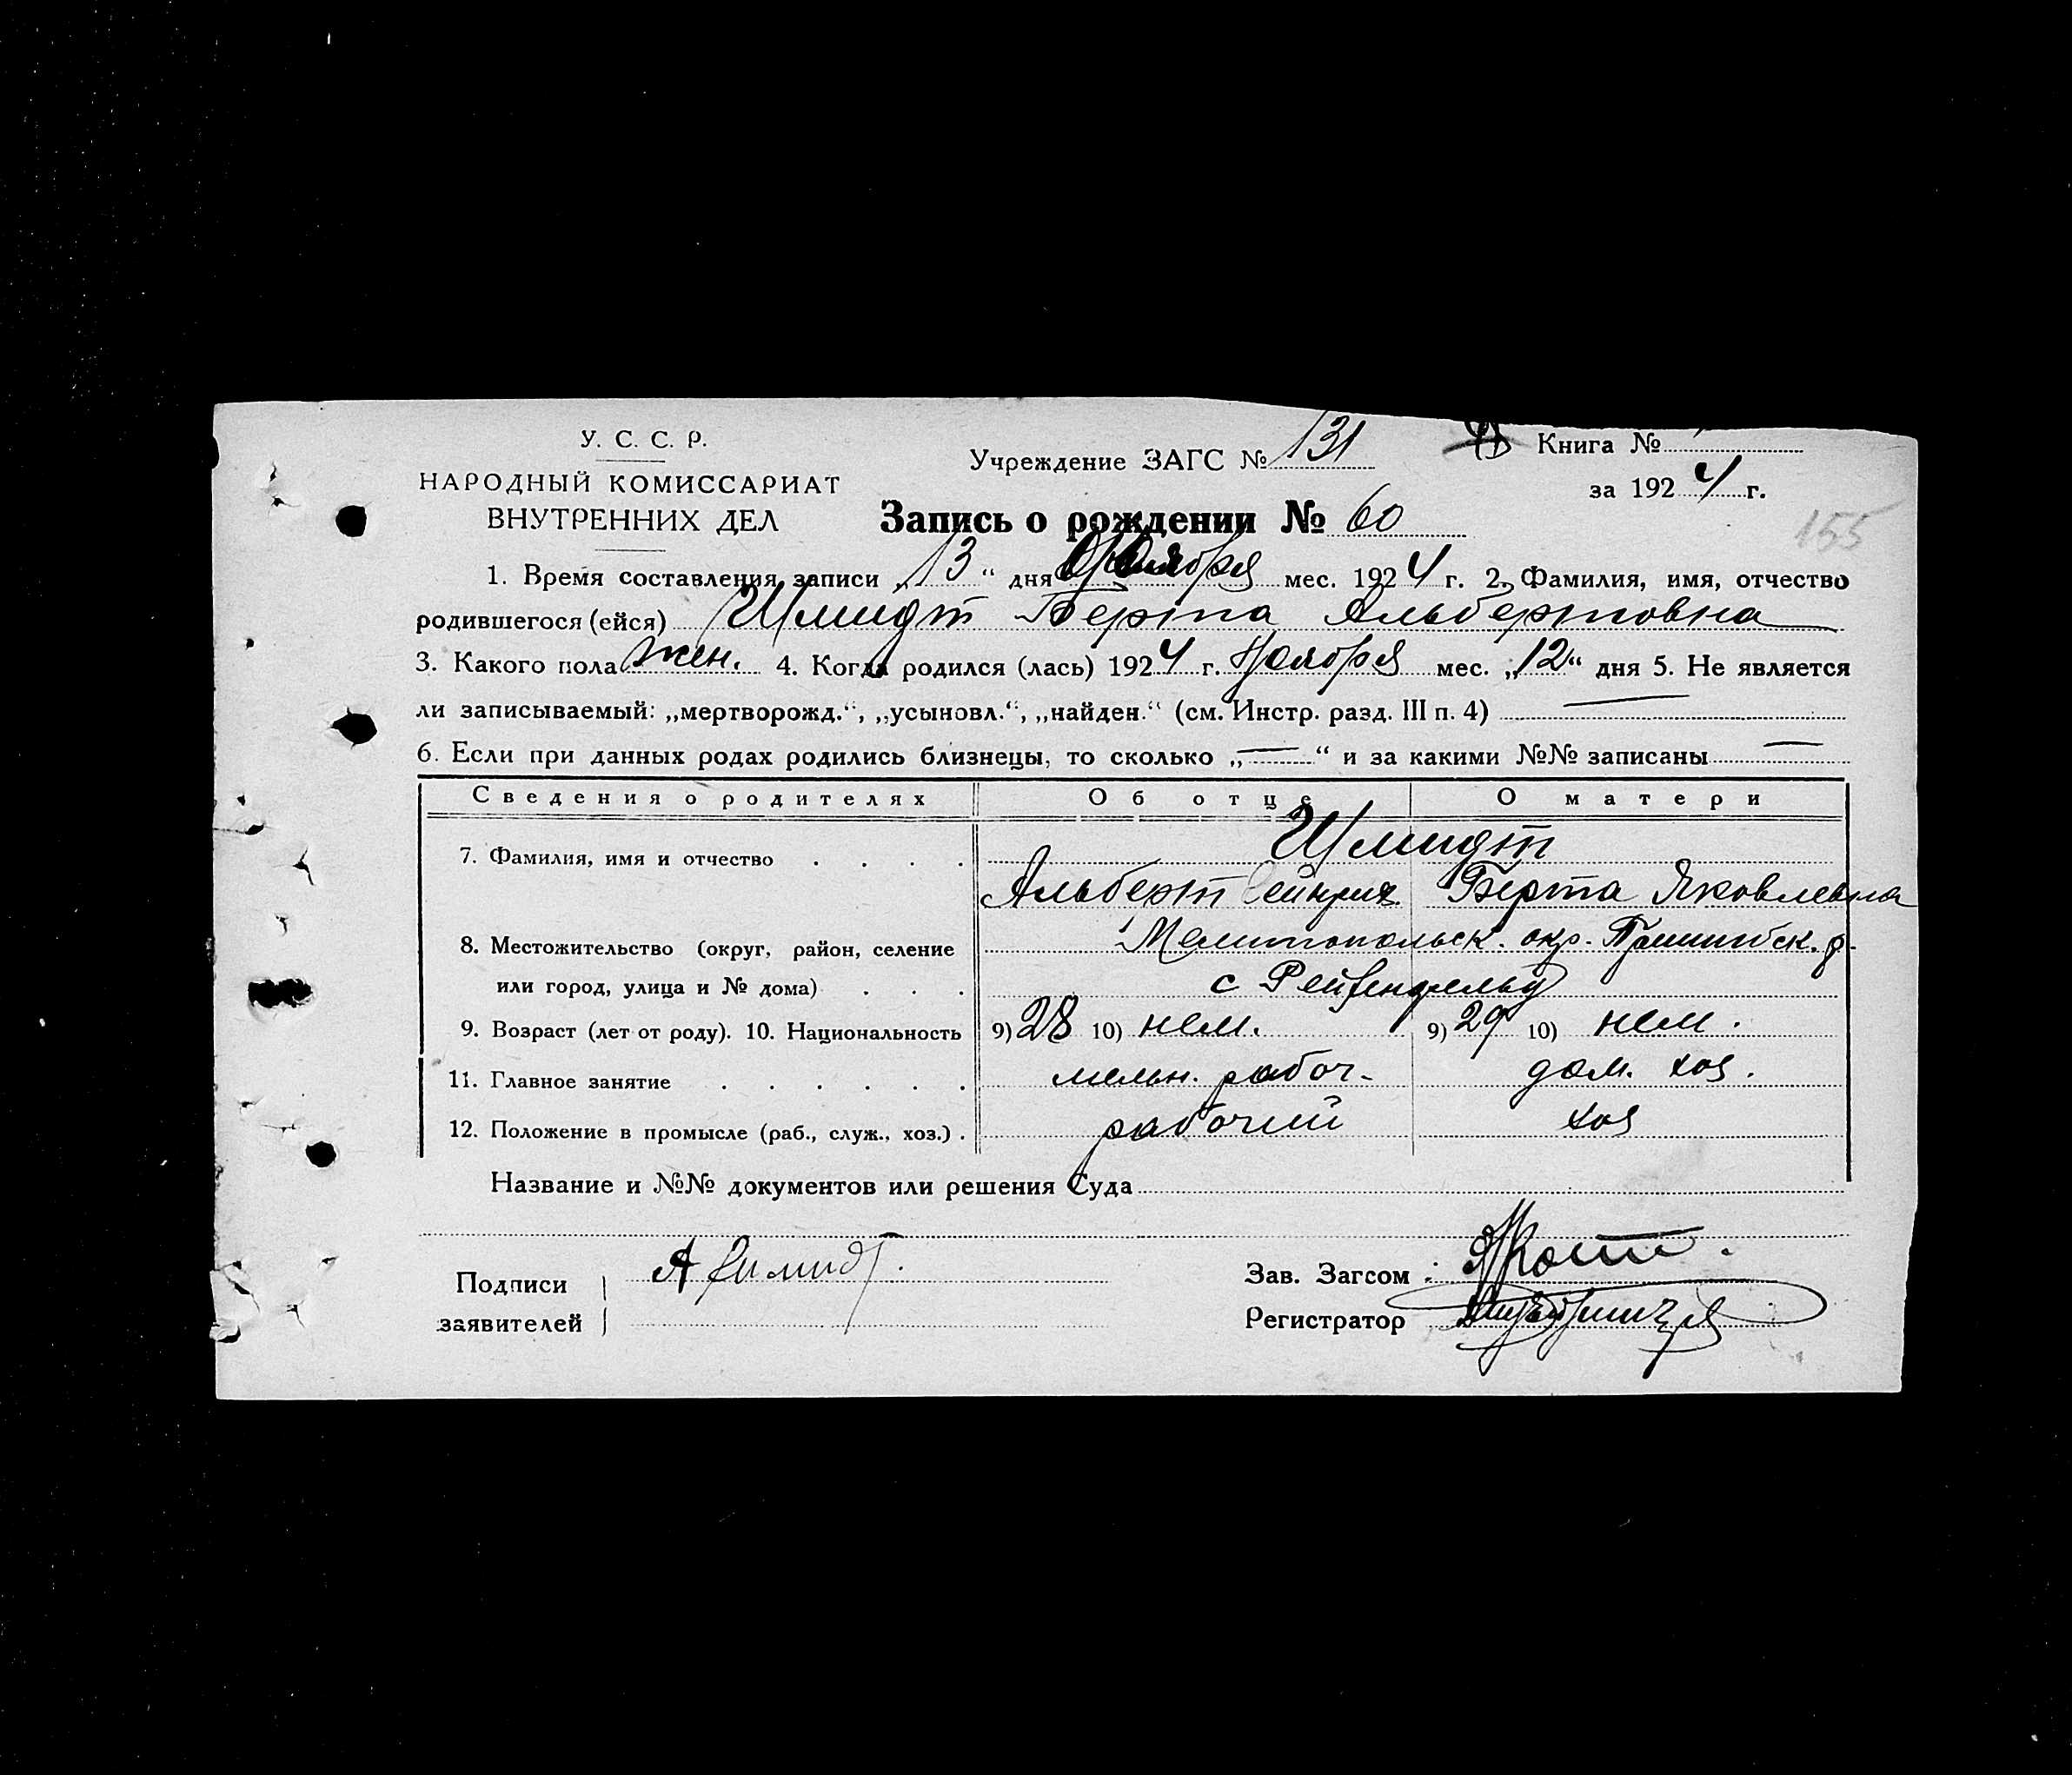 У. С. С. Р.
НАРОДНЫЙ КОМИССАРИАТ
ВНУТРЕННИХ ДЕЛ
Учреждение ЗАГС № 131
Книга №
за 1924 г.
Запись о рождении № 60
155
1. Время составления записи „13“ дня Ноября мес. 1924 г. 2. Фамилия, имя, отчество
родившегося (ейся) Шмидт Берта Альбертовна
3. Какого пола жен. 4. Когда родился (лась) 1924 г. Ноября мес. „12“ дня 5. Не является
ли записываемый: „мертворожд.“, „усыновл.“, „найден.“ (см. Инстр. разд. III п. 4) —
6. Если при данных родах родились близнецы, то сколько „—“ и за какими №№ записаны —
Сведения о родителях Об отце О матери
7. Фамилия, имя и отчество . . . . Шмидт
Альберт Гейнрих. Берта Яковлевна
8. Местожительство (округ, район, селение Мелитопольск. окр. р.
или город, улица и № дома) . . . с Рейфенфельд
9. Возраст (лет от роду). 10. Национальность 9) 28 10) нем. 9) 29 10) нем.
11. Главное занятие . . . . . . мельн. рабоч. дом. хоз.
12. Положение в промысле (раб., служ., хоз.) . рабочий хоз
Название и №№ документов или решения Суда
Подписи
заявителей
А Шмидт.
Зав. Загсом :
Регистратор